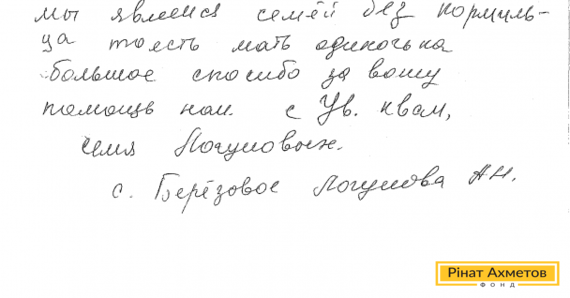 мы являемся семьёй без кормиль-
ца тоесть мать одиночька
большое спосибо за вашу
помощь нам. с Ув. квам,
семя Логуновых.
с. Берёзовое Логунова А Н.
Рінат Ахметов
ФОНД